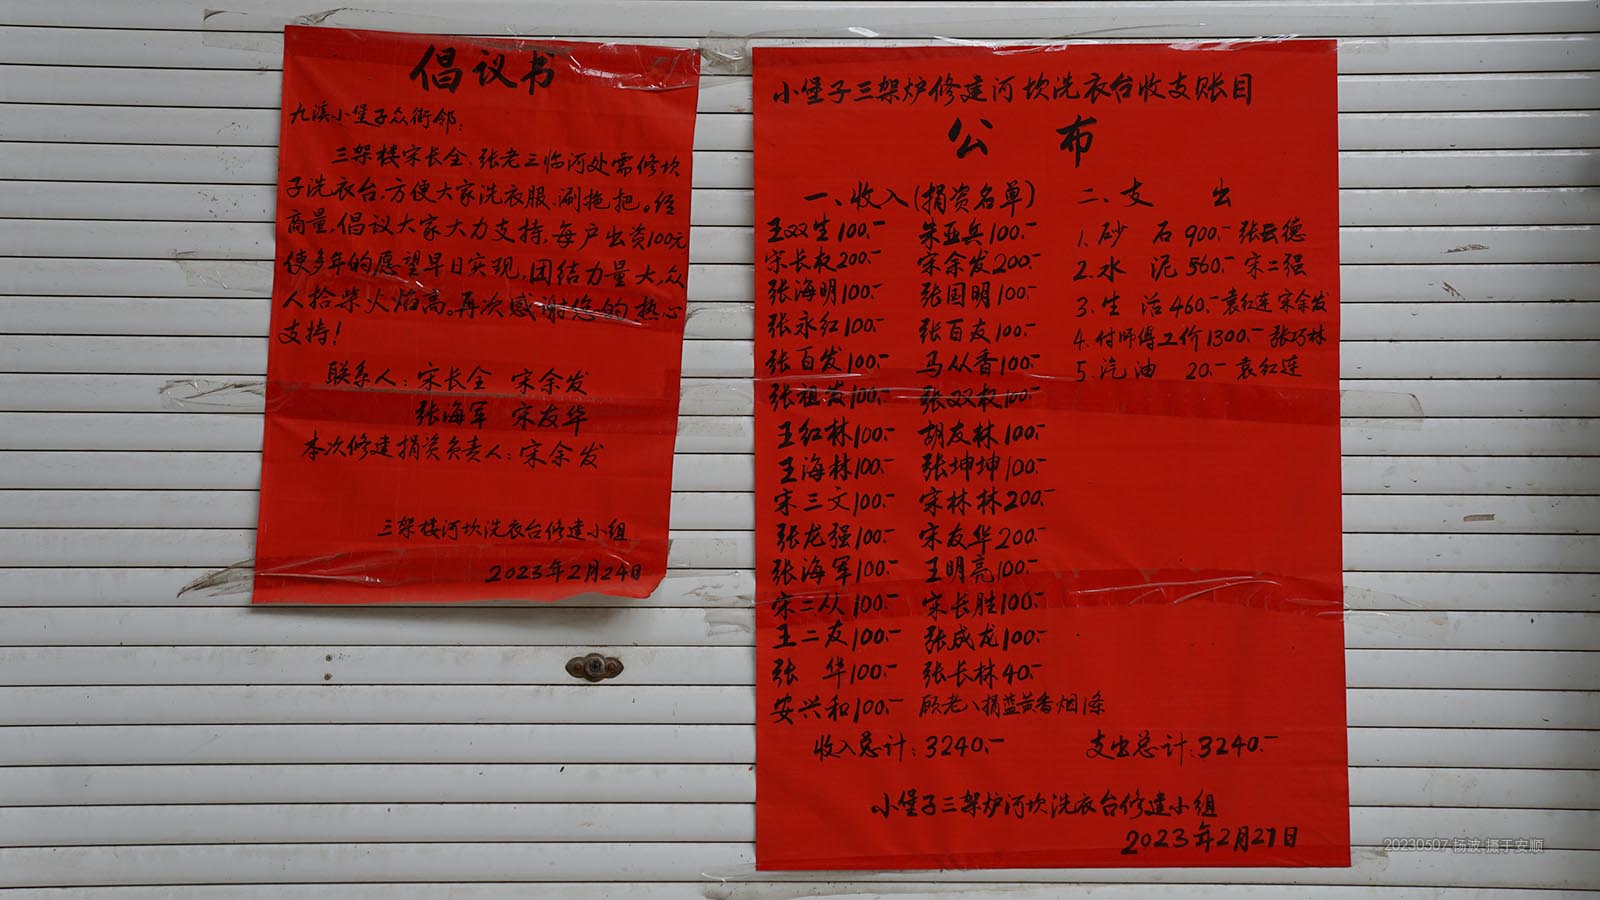 倡议书
九溪小堡子众街邻:
三架楼宋长全、张老三临河处需修坎
子洗衣台,方便大家洗衣服、涮拖把。经
商量,倡议大家大力支持,每户出资100元
使多年的愿望早日实现,团结力量大,众
人拾柴火焰高。再次感谢您的热心
支持!
联系人:宋长全 宋余发
张海军 宋友华
本次修建捐资负责人:宋余发
三架楼河坎洗衣台修建小组
2023年2月24日
小堡子三架炉修建河坎洗衣台收支账目
公布
一、收入(捐资名单) 二、支出
王双生100.- 朱亚兵100.- 1.砂石900.- 张云德
宋长权200.- 宋余发200.- 2.水泥560.- 宋二强
张海明100.- 张国明100.- 3.生活460.- 袁红连 宋余发
张永红100.- 张百友100.- 4.付师傅工价1300.- 张巧林
张百发100.- 马从香100.- 5.汽油20.- 袁红连
张祖发100.- 张双权100.-
王红林100.- 胡友林100.-
王海林100.- 张坤坤100.-
宋三文100.- 宋林林200.-
张龙强100.- 宋友华200.-
张海军100.- 王明亮100.-
宋二从100.- 宋长胜100.-
王二友100.- 张成龙100.-
张华100.- 张长林40.-
安兴和100.- 顾老八捐蓝黄香烟1条
收入总计:3240.- 支出总计:3240.-
小堡子三架炉河坎洗衣台修建小组
2023年2月27日
20230507 杨波·摄于安顺